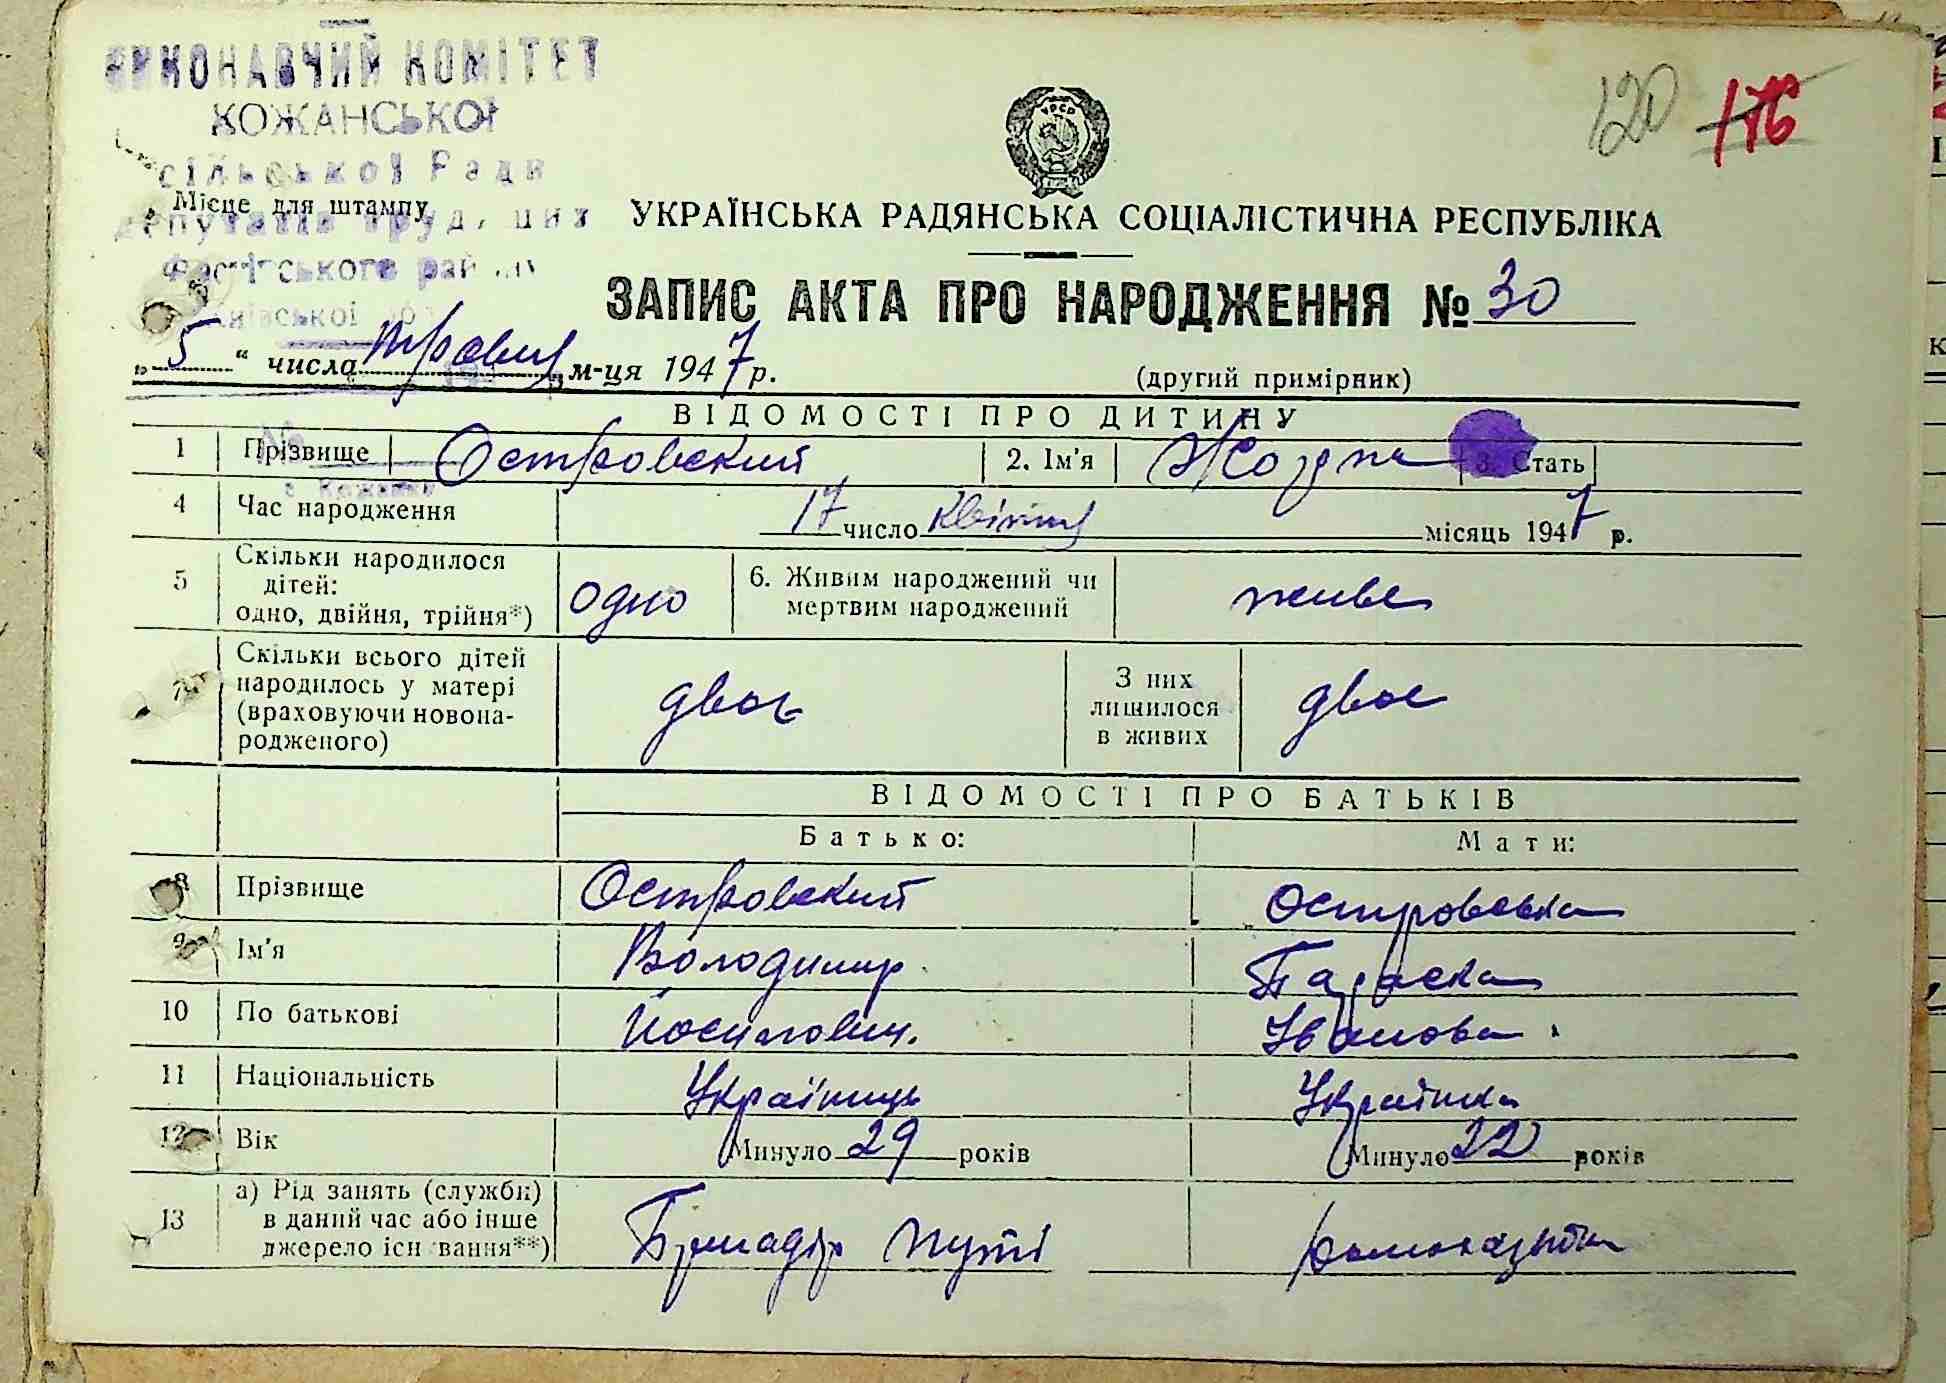 ВИКОНАВЧИЙ КОМІТЕТ
КОЖАНСЬКОЇ
сільської Ради
Місце для штампу
депутатів труд
Фастівського району
Київської
120 176
УРСР
УКРАЇНСЬКА РАДЯНСЬКА СОЦІАЛІСТИЧНА РЕСПУБЛІКА
ЗАПИС АКТА ПРО НАРОДЖЕННЯ № 30
„5“ числа травня м-ця 1947 р.
(другий примірник)
ВІДОМОСТІ ПРО ДИТИНУ
1 Прізвище Островский 2. Ім'я 3. Стать
4 Час народження 17 число квітня місяць 1947 р.
5 Скільки народилося дітей: одно, двійня, трійня*) одно 6. Живим народжений чи мертвим народжений живе
7 Скільки всього дітей народилось у матері (враховуючи новонародженого) двоє З них лишилося в живих двоє
ВІДОМОСТІ ПРО БАТЬКІВ
Батько: Мати:
8 Прізвище Островский Островська
9 Ім'я Володимир Параска
10 По батькові Йосипович. Івановна
11 Національність Українець Українка
12 Вік Минуло 29 років Минуло 22 років
13 а) Рід занять (служби) в даний час або інше джерело існування**) Бригадір путі домохазяйка